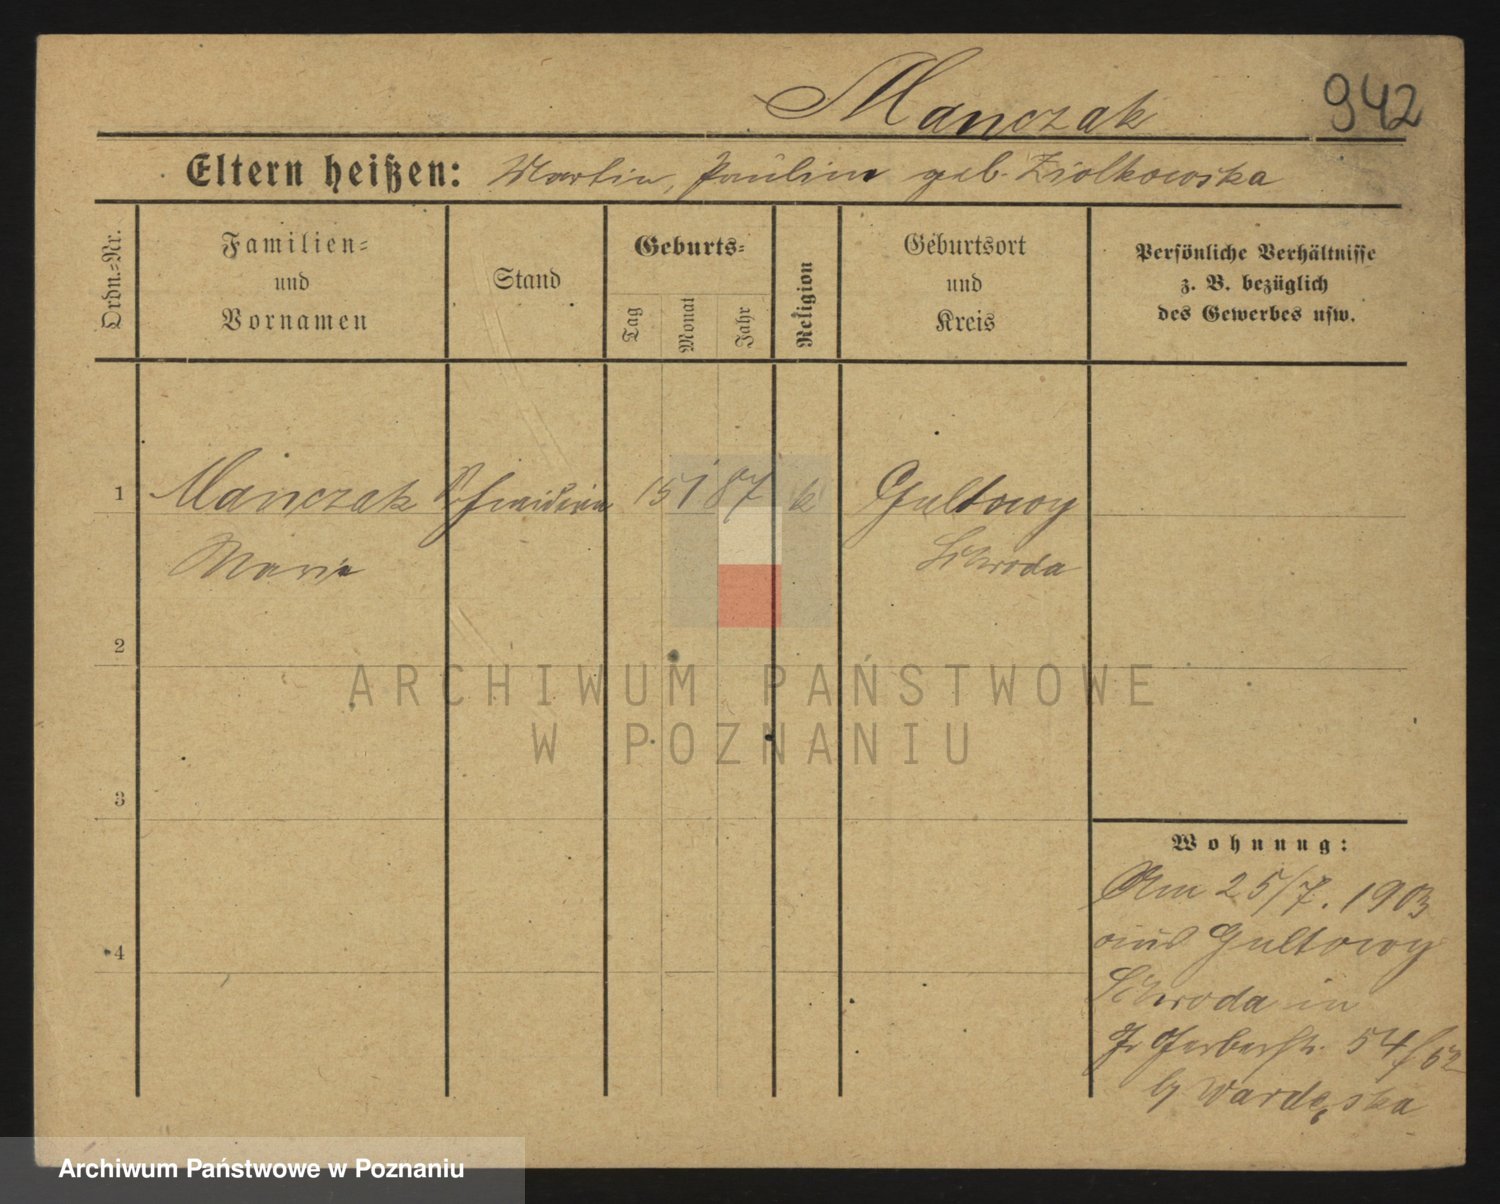 Manczak
942
Eltern heißen: Martin, Paulin geb. Ziolkowska
Ordn.-Nr.
Familien-
und
Vornamen
Stand
Geburts-
Tag
Monat
Jahr
Religion
Geburtsort
und
Kreis
Persönliche Verhältnisse
z. B. bezüglich
des Gewerbes usw.
1 Manczak 15 1 87 k Gultowy
Marie Schroda
2
ARCHIWUM PAŃSTWOWE
W POZNANIU
3
Wohnung:
Am 25/7. 1903
aus Gultowy
4
Schroda in
Gerberstr. 54/52
Wardęska
Archiwum Państwowe w Poznaniu